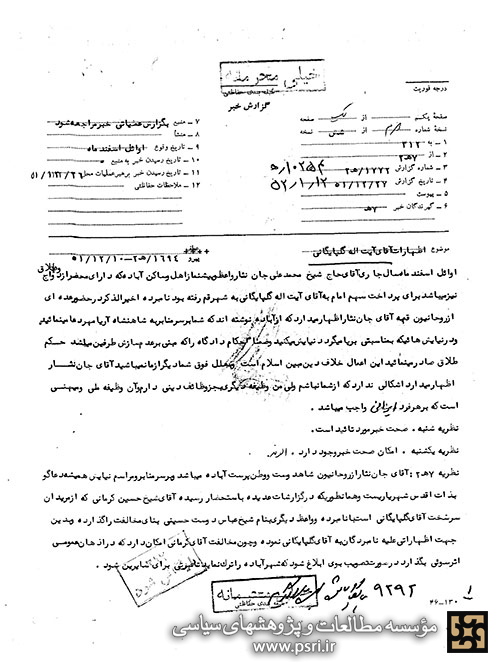 خیلی محرمانه
طبقه بندی حفاظتی
گزارش خبر
درجه فوریت
صفحه یکم از یک صفحه
نسخه شماره از شش نسخه
۱ ـ به ۳۱۲
۲ ـ از ۷هـ
۳ ـ شماره گزارش ۱۷۷۲/هـ۲
۴ ـ تاریخ گزارش ۵۱/۱۲/۲۷
۵ ـ پیوست
۶ ـ گیرندگان خبر ۷هـ
۷ ـ منبع بگزارش عملیاتی خبر مراجعه شود
۸ ـ منشأ
۹ ـ تاریخ وقوع اوائل اسفند ماه
۱۰ ـ تاریخ رسیدن خبر به منبع
۱۱ ـ تاریخ رسیدن خبر به رهبر عملیات محل ۵۱/۱۲/۲۶
۱۲ ـ ملاحظات حفاظتی
موضوع اظهارات آقای آیت اله گلپایگانی
پیرو ۱۶۹۴/هـ۲ ـ ۵۱/۱۲/۱۰
اوائل اسفند ماه سال جاری آقای حاج شیخ محمد علی جان نثار واعظ و پیشنماز اهل و ساکن آباده که دارای محضر ازدواج وطلاق
نیز میباشد برای پرداخت سهم امام به آقای آیت اله گلپایگانی به شهر قم رفته بود نامبرده اخیرالذکر در حضور عده ای
از روحانیون قم به آقای جان نثار اظهار میدارد که از آباده نوشته اند که شما بر سر منابر به شاهنشاه آریامهر دعا مینمائید
و در نیایش هائیکه بمناسبتی برپا میگردد نیایش میکنید وضمنا احکام دادگاه را که مبنی بر عدم سازش طرفین میباشد حکم
طلاق صادر مینمائید این اعمال خلاف دین مبین اسلام است فوق شما دیگر امام نمیباشید آقای جان نثار
اظهار میدارد اشکالی ندارد که از شما نباشم ولی من وظیفه دیگری بجز وظائف دینی دارم و آن وظیفه ملی و میهنی
است که بر هر فرد ایرانی واجب میباشد .
نظریه شنبه . صحت خبر مورد تائید است .
نظریه یکشنبه . امکان صحت خبر وجود دارد .
نظریه ۷هـ۲ : آقای جان نثار از روحانیون شاهدوست و وطن پرست آباده میباشد و بر سر منابر و مراسم نیایش همیشه دعاگو
بذات اقدس شهریاریست و همانطوریکه در گزارشات عدیده باستحضار رسیده آقای شیخ حسین کرمانی که از مریدان
سرسخت آقای گلپایگانی است با نامبرده و واعظ دیگری بنام شیخ عباس دست حسینی بنای مخالفت را گذارده و بدین
جهت اظهاراتی علیه نامبردگان به آقای گلپایگانی نموده و چون مخالفت آقای کرمانی امکان دارد که در اذهان عمومی
اثر سوئی بگذارد در صورت تصویب بوی ابلاغ شود که شهر آباده را ترک نماید تا عبرتی برای سایرین شود .
خیلی محرمانه
طبقه بندی حفاظتی
۹۲۹۲
۴۶ـ۱۳۰
مؤسسه مطالعات و پژوهشهای سیاسی
www.psri.ir